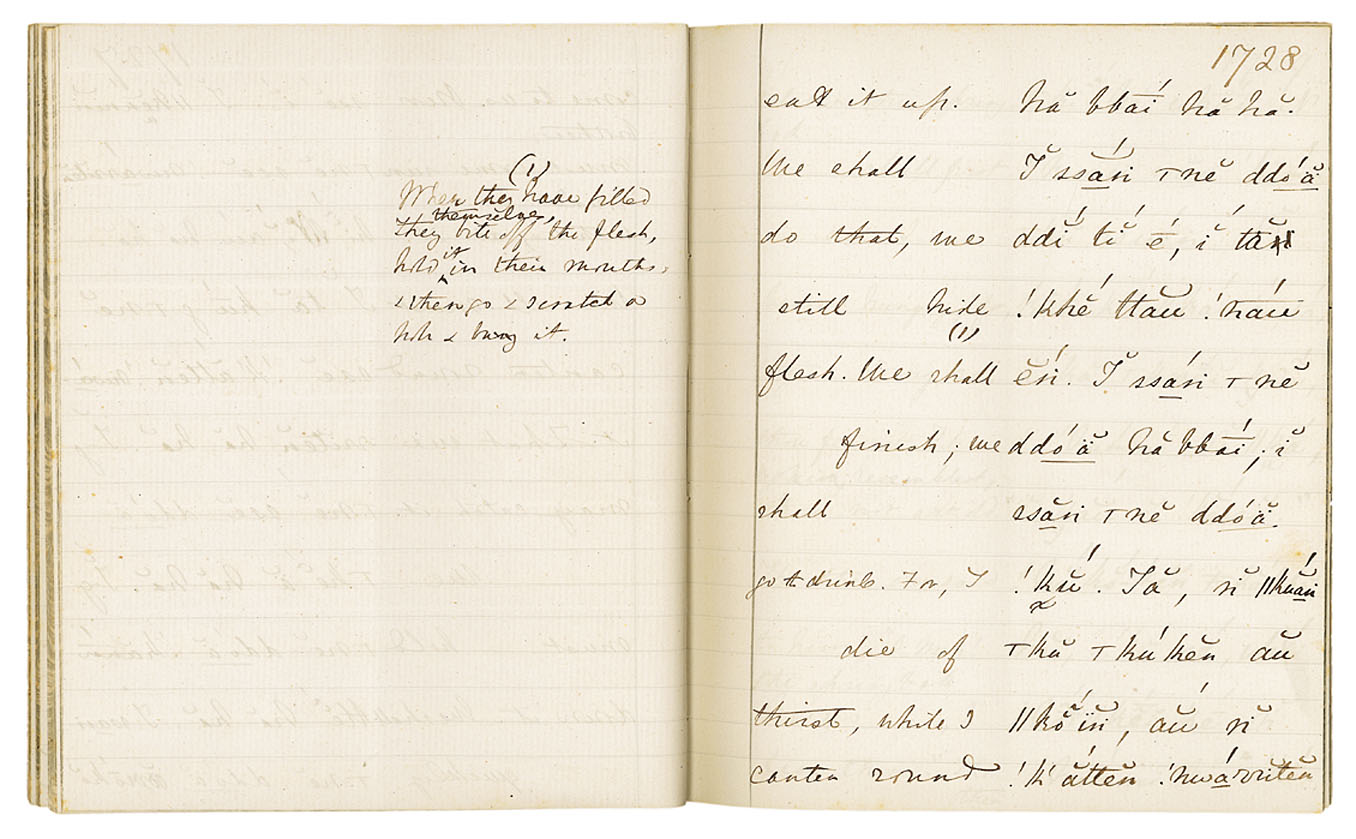 (1)
When they have filled
themselves,
they bite off the flesh,
hold it in their mouths,
& then go & scratch a
hole & bury it.
1728
eat it up. hă bbāí hă hă.
We shall Ĭ ssá̱ri ⊤nĕ ddó̱ắ
do that, we ddĭ́ tĭ́ é, ĭ́
still hide !khé́ ttău !háú
(1)
flesh. We shall ĕ́ri. Ĭ ssá̱ri ⊤nĕ
finish; we ddó̱ä̆ hă bbāí; ĭ
shall ssă̱ri ⊤nĕ ddó̱ä̆.
go & drink. For, I !kŭ́. Ĭă, ri ||kuă̱ri
die of ⊤kă ⊤kúkĕn aŭ
thirst, while I aŭ́ ri
canter round !k'ắttĕn !hwá̱rritĕn